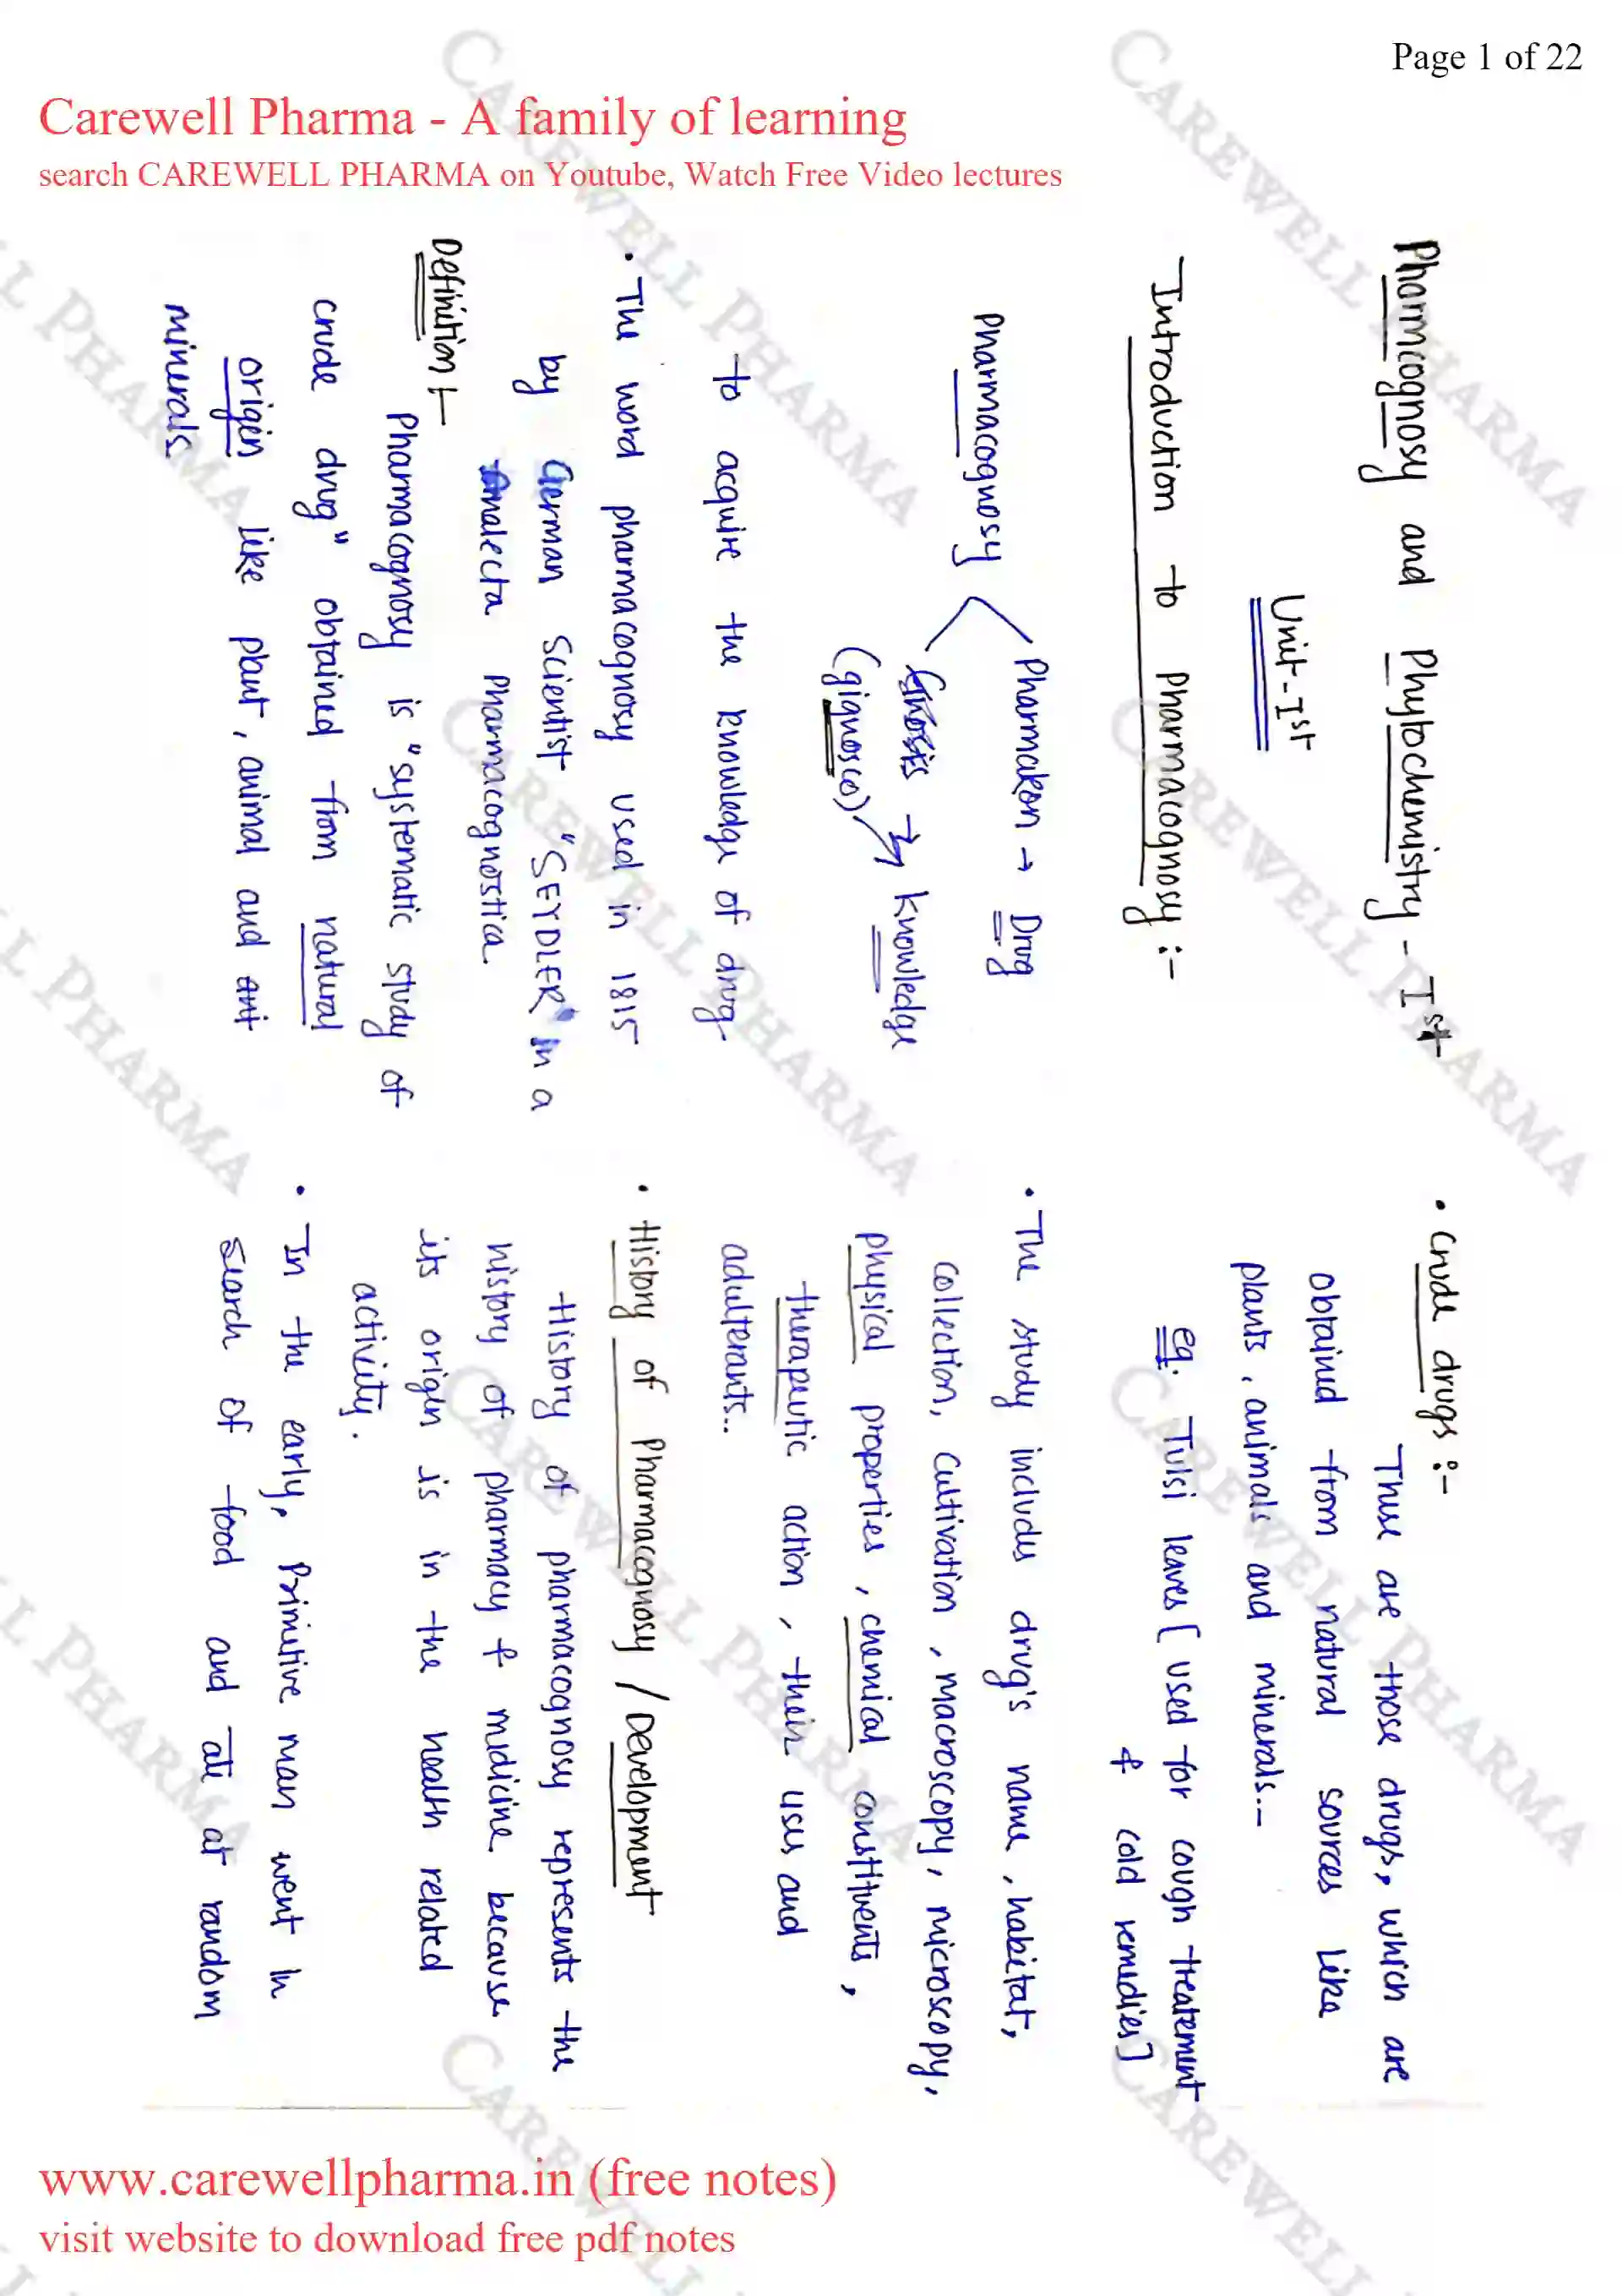 Page 1 of 22
Carewell Pharma - A family of learning
search CAREWELL PHARMA on Youtube, Watch Free Video lectures
Pharmcognosy and Phytochemistry - Ist
Unit - Ist
Introduction to Pharmacognosy :-
Pharmacognosy
Pharmakon → Drug
Gnosis → Knowledge
(gignosco)
to acquire the knowledge of drug.
• The word pharmacognosy used in 1815
by German Scientist "SEYDLER" in a
Analecta Pharmacognostica.
Definition :-
Pharmacognosy is "systematic study of
crude drug" obtained from natural
origin like plant, animal and
minerals.
• Crude drugs :-
These are those drugs, which are
obtained from natural sources like
plants, animals and minerals.-
eg. Tulsi leaves [used for cough treatement
& cold remedies]
• The study includes drug's name, habitat,
collection, cultivation, macroscopy, microscopy,
physical properties, chemical constituents,
therapeutic action, their uses and
adulterants..
• History of Pharmacognosy / Development
History of pharmacognosy represents the
history of pharmacy & medicine because
its origin is in the health related
activity.
• In the early, Primitive man went in
search of food and ate at random
www.carewellpharma.in (free notes)
visit website to download free pdf notes
CAREWELL PHARMA